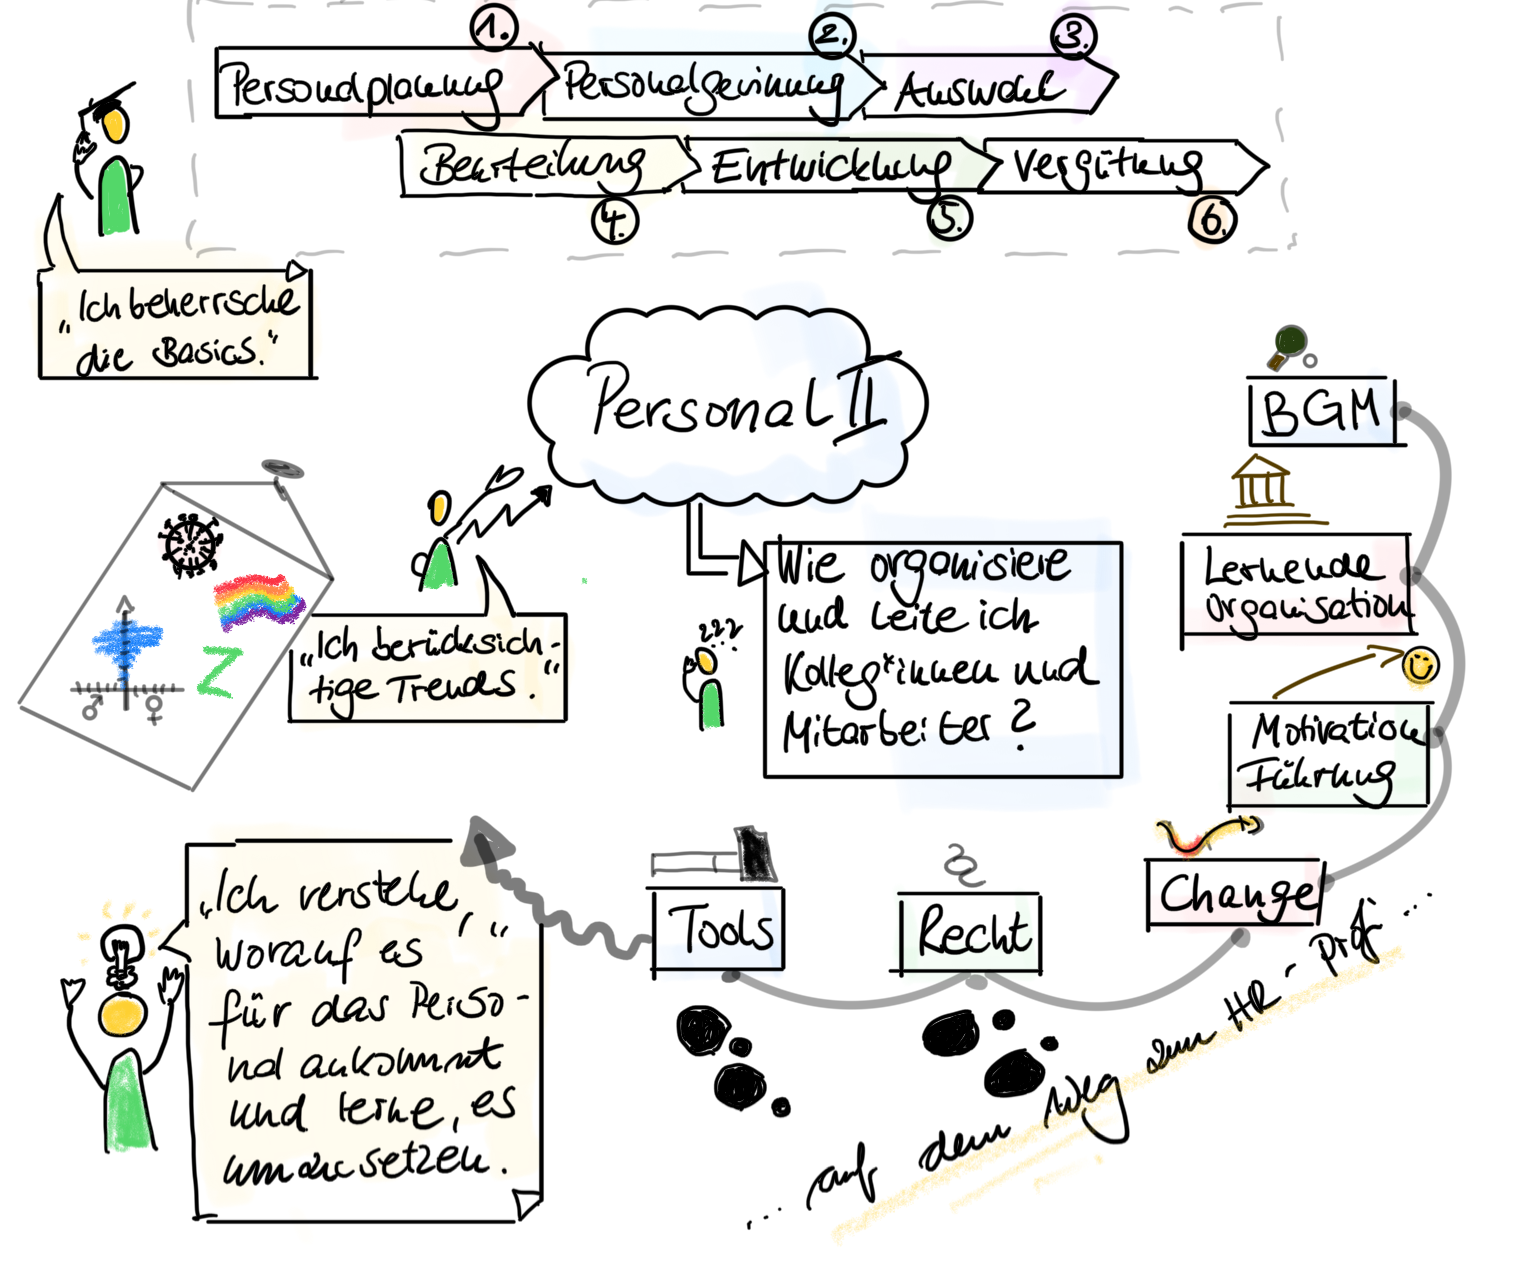 1.
2.
3.
Personalplanung
Personalgewinnung
Auswahl
Beurteilung
Entwicklung
Vergütung
4.
5.
6.
„Ich beherrsche
die Basics.“
Personal II
BGM
Lernende
Organisation
Motivation
Führung
Change
Recht
Tools
Wie organisiere
und leite ich
Kolleg*innen und
Mitarbeiter?
???
„Ich berücksich-
tige Trends.“
Z
♂ ♀
„Ich verstehe,“
worauf es
für das Perso-
nal ankommt
und lerne, es
umzusetzen.
... auf dem Weg zum HR-Prof ...